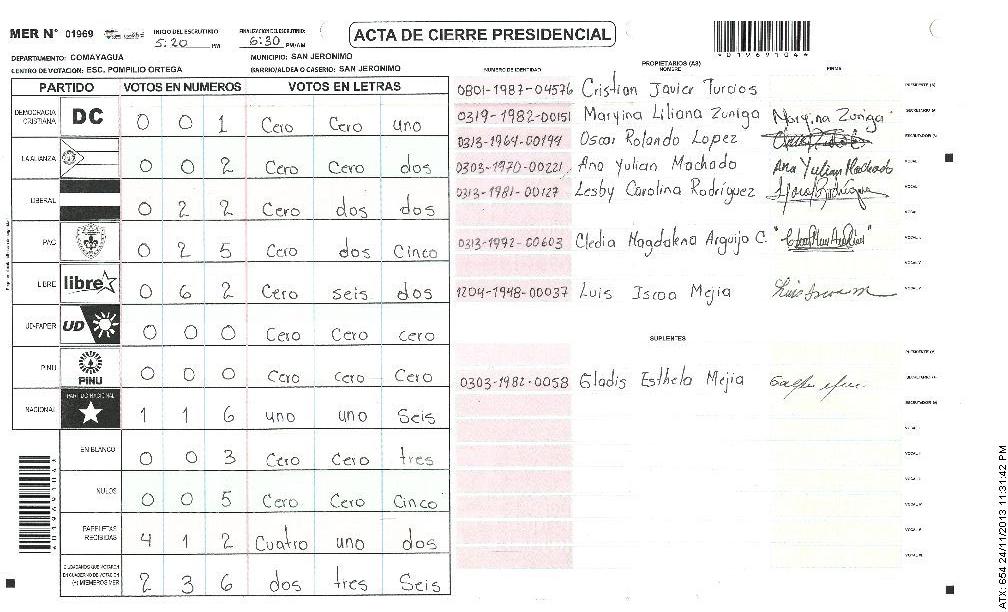 MER N° 01969
INICIO DEL ESCRUTINIO
5:20 PM
FINALIZACION DEL ESCRUTINIO:
6:30 PM/AM
ACTA DE CIERRE PRESIDENCIAL
019691044
DEPARTAMENTO: COMAYAGUA
MUNICIPIO: SAN JERONIMO
CENTRO DE VOTACION: ESC. POMPILIO ORTEGA
BARRIO/ALDEA O CASERIO: SAN JERONIMO
PARTIDO VOTOS EN NUMEROS VOTOS EN LETRAS
DEMOCRACIA CRISTIANA DC 0 0 1 Cero Cero uno
LA ALIANZA 0 0 2 Cero Cero dos
LIBERAL 0 2 2 Cero dos dos
PAC 0 2 5 Cero dos Cinco
LIBRE libre 0 6 2 Cero seis dos
UD-FAPER UD 0 0 0 Cero Cero cero
PINU PINU 0 0 0 Cero Cero Cero
NACIONAL PARTIDO NACIONAL 1 1 6 uno uno Seis
EN BLANCO 0 0 3 Cero Cero tres
NULOS 0 0 5 Cero Cero Cinco
PAPELETAS RECIBIDAS 4 1 2 Cuatro uno dos
CIUDADANOS QUE VOTARON EN CUADERNO DE VOTACION (+) MIEMBROS MER 2 3 6 dos tres Seis
NUMERO DE IDENTIDAD
PROPIETARIOS (AS)
NOMBRE
FIRMA
0801-1987-04576 Cristian Javier Turcios PRESIDENTE (A)
0319-1982-00151 Maryina Liliana Zuniga Maryina Zuniga SECRETARIO (A)
0313-1964-00194 Oscar Rolando Lopez ESCRUTADOR (A)
0303-1970-00221 Ana Yulian Machado Ana Yulian Machado VOCAL I
0313-1981-00127 Lesby Carolina Rodríguez
0313-1992-00603 Cledia Magdalena Arguijo C.
1204-1948-00037 Luis Iscoa Mejia
SUPLENTES
PRESIDENTE (A)
0303-1982-0058 Gladis Esthela Mejia SECRETARIO (A)
ESCRUTADOR (A)
ATX: 654 24/11/2013 11:31:42 PM